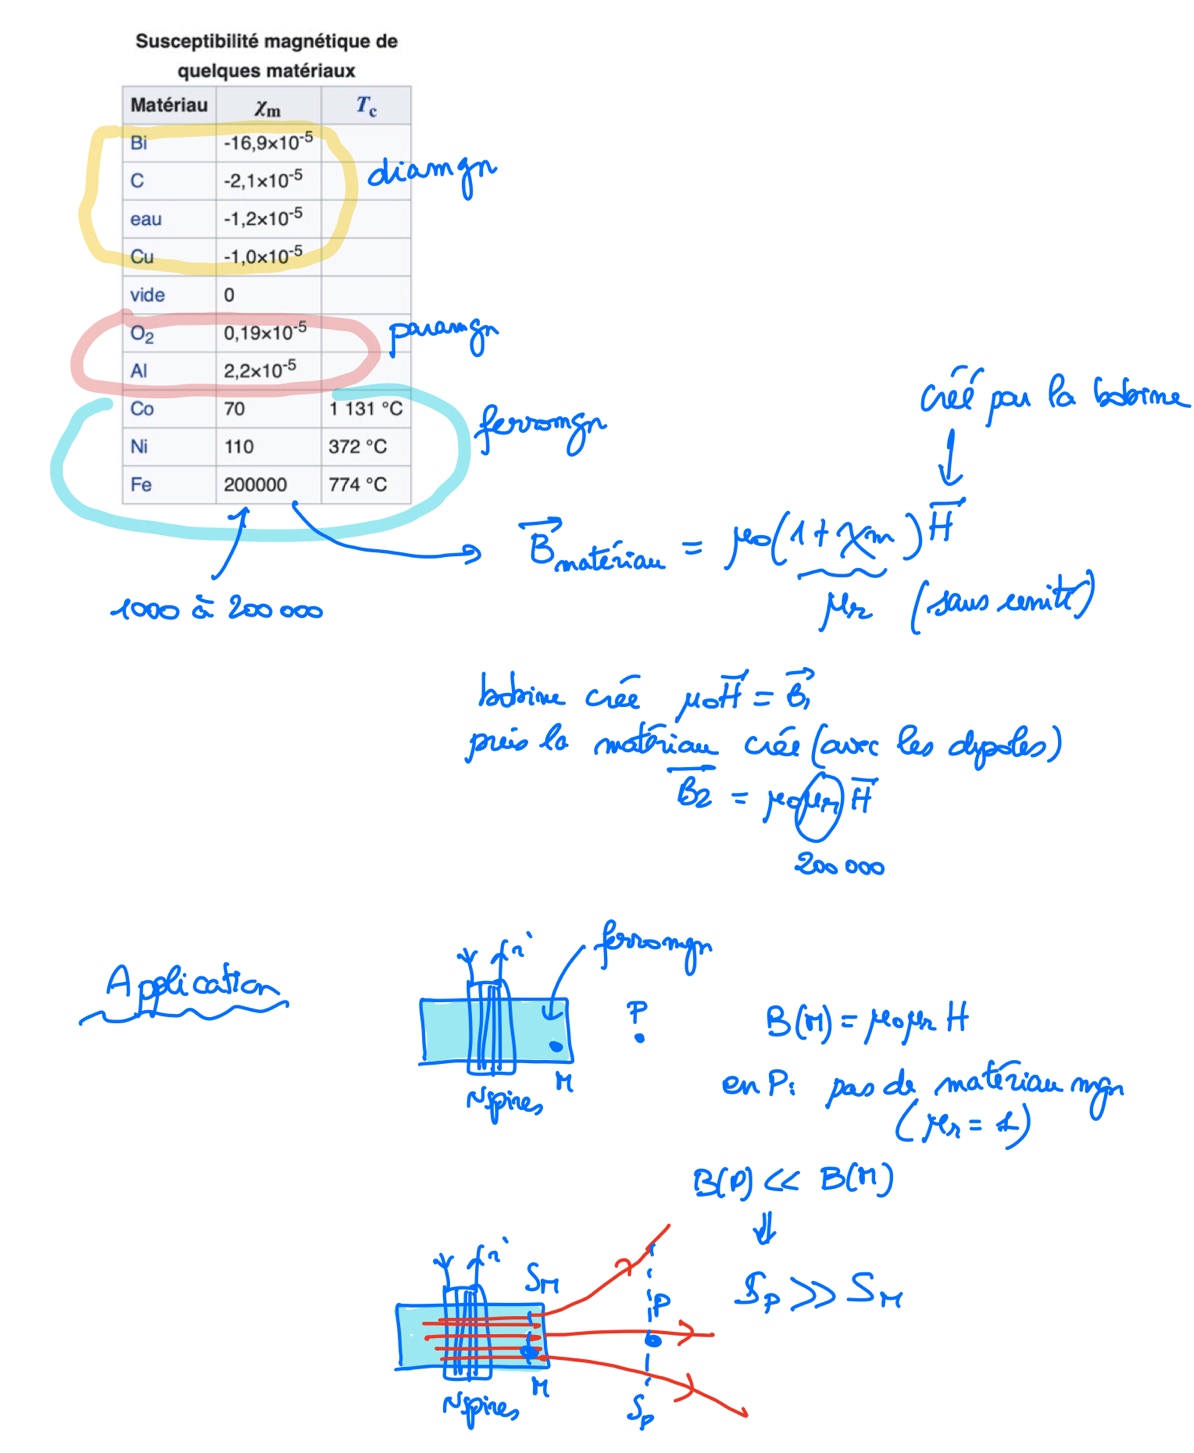 Susceptibilité magnétique de
quelques matériaux
Matériau χm Tc
Bi -16,9×10-5
C -2,1×10-5
eau -1,2×10-5
Cu -1,0×10-5
vide 0
O2 0,19×10-5
Al 2,2×10-5
Co 70 1 131 °C
Ni 110 372 °C
Fe 200000 774 °C
diamgn
paramgn
ferromgn
1000 à 200 000
créé par la bobine
B matériau = μ0(1 + χm) H
μr (sans unité)
bobine créé μ0H = B1
puis la matériau créé (avec les dipoles)
B2 = μ0μr H
200 000
Application
i
ferromgn
P
M
N spires
B(M) = μ0μr H
en P: pas de matériau mgn
(μr = 1)
B(P) << B(M)
⇓
SP >> SM
i
SM
P
M
N spires
Sp